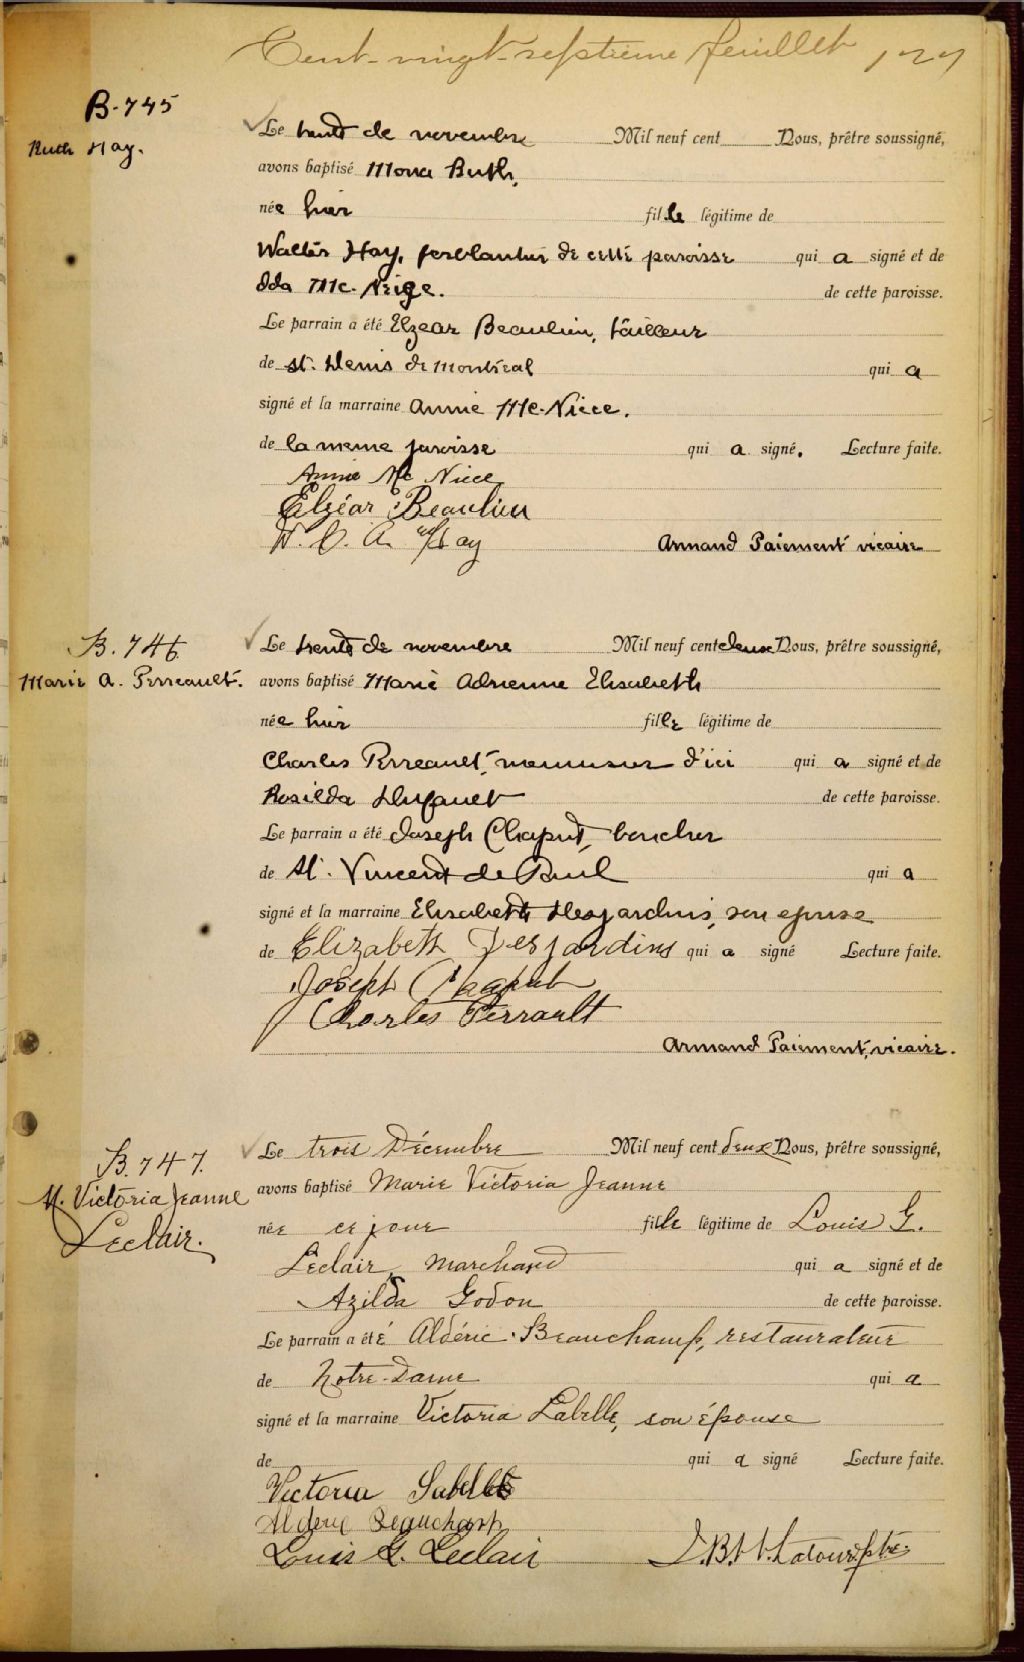 Cent-vingt-septième feuillet 127
B-745
Ruth Hay.
Le trente de novembre Mil neuf cent Nous, prêtre soussigné,
avons baptisé Mona Ruth,
née hier fille légitime de
Walter Hay, ferblantier de cette paroisse qui a signé et de
Ida Mc. Neige. de cette paroisse.
Le parrain a été Elzear Beaulieu, tailleur
de St. Denis de Montreal qui a
signé et la marraine Annie Mc-Niece.
de la meme paroisse qui a signé. Lecture faite.
Annie Mc Niece
Elzéar Beaulieu
W. A. Hay Armand Paiement vicaire
B. 746
Marie A. Perreault.
Le trente de novembre Mil neuf cent deux Nous, prêtre soussigné,
avons baptisé Marie Adrienne Elisabeth
née hier fille légitime de
Charles Perreault, menuisier d'ici qui a signé et de
Rosilda Dufault de cette paroisse.
Le parrain a été Joseph Chaput, boucher
de St. Vincent de Paul qui a
signé et la marraine Elisabeth Desjardins, son epouse
de Elizabeth Desjardins qui a signé Lecture faite.
Joseph Chaput
Charles Perrault
Armand Paiement, vicaire.
B. 747.
M. Victoria Jeanne
Leclair.
Le trois Décembre Mil neuf cent deux Nous, prêtre soussigné,
avons baptisé Marie Victoria Jeanne
née ce jour fille légitime de Louis G.
Leclair, marchand qui a signé et de
Azilda Godon de cette paroisse.
Le parrain a été Aldéric Beauchamp, restaurateur
de Notre-Dame qui a
signé et la marraine Victoria Labelle, son épouse
de qui a signé Lecture faite.
Victoria Labelle
Alderic Beauchamp
Louis G. Leclair Latour ptre.